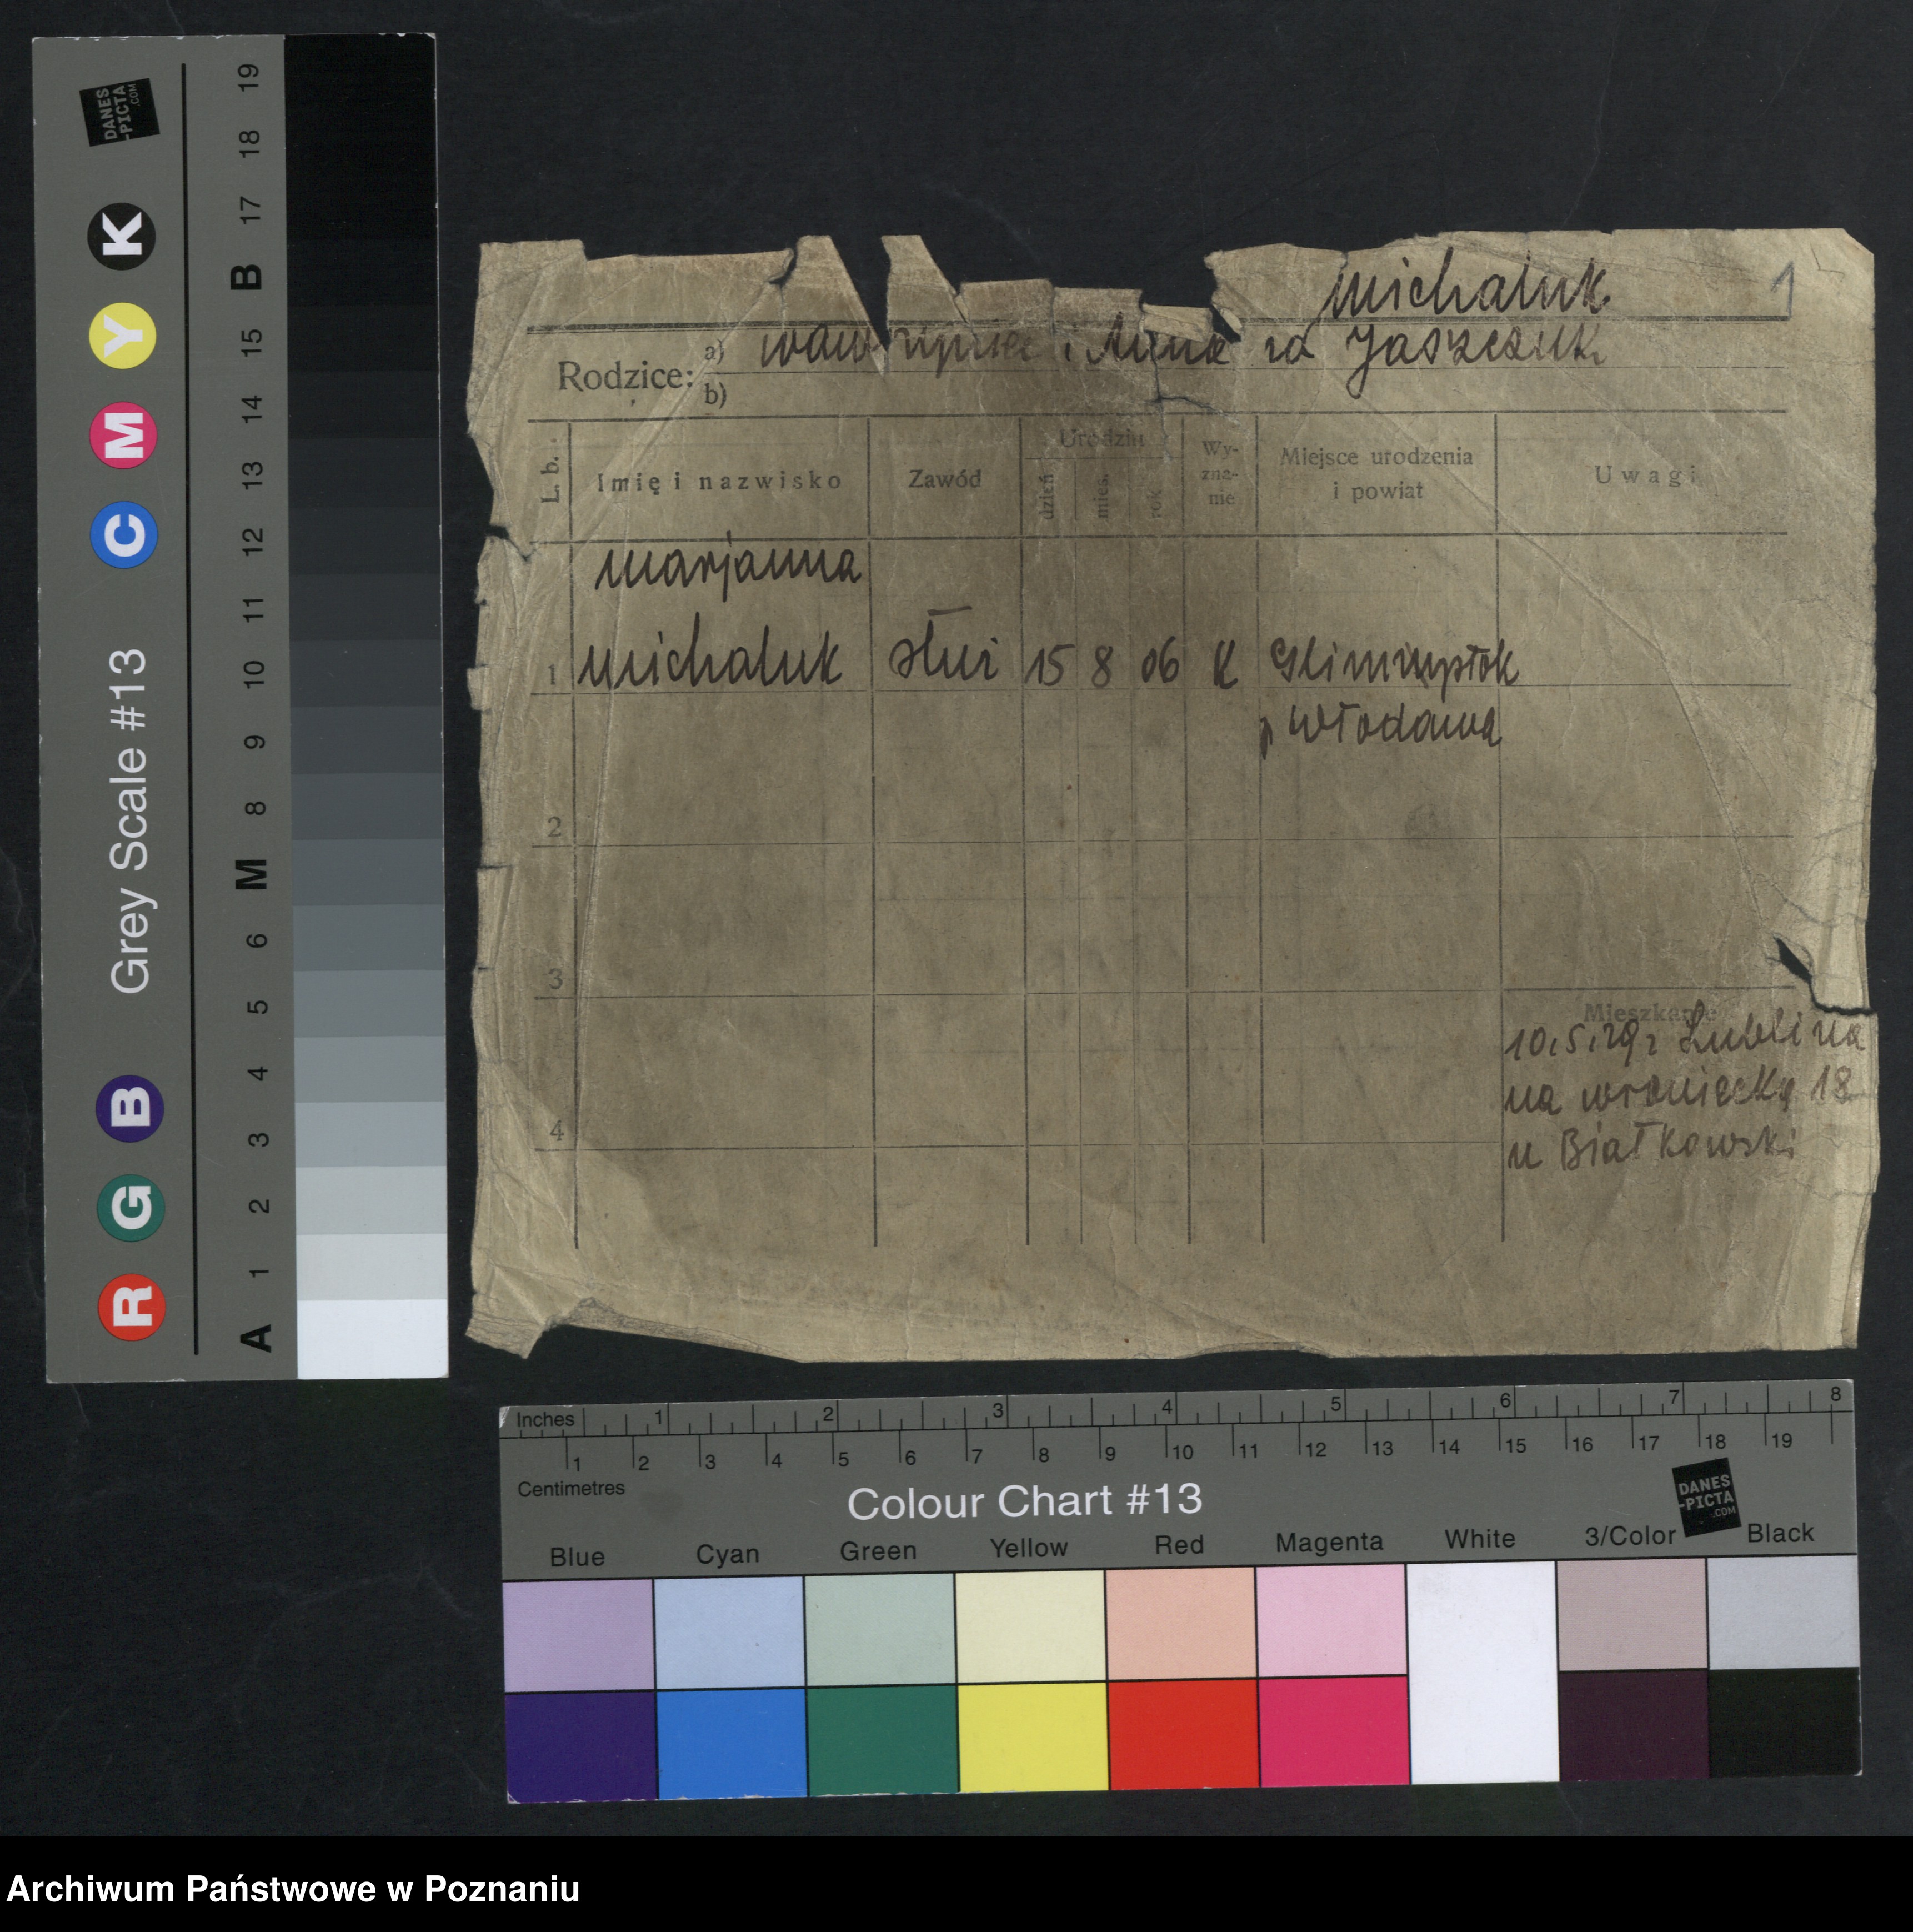 michaluk 1
Rodzice: a) wawrzyniec i Anna zd Jaszczuk
b)
L. b. Imię i nazwisko Zawód Urodził dzień mies. rok Wy-zna-nie Miejsce urodzenia i powiat Uwagi
marjanna
1 michaluk służ 15 8 06 K
p Włodawa
2
3
Mieszkanie
10.5.29 z Lublina
na wroniecką 18
4 u Białkowski
Grey Scale #13
DANES-PICTA.COM
R G B C M Y K
A 1 2 3 4 5 6 M 8 9 10 11 12 13 14 15 B 17 18 19
Inches 1 2 3 4 5 6 7 8
1 2 3 4 5 6 7 8 9 10 11 12 13 14 15 16 17 18 19
Centimetres
Colour Chart #13
DANES-PICTA.COM
Blue Cyan Green Yellow Red Magenta White 3/Color Black
Archiwum Państwowe w Poznaniu